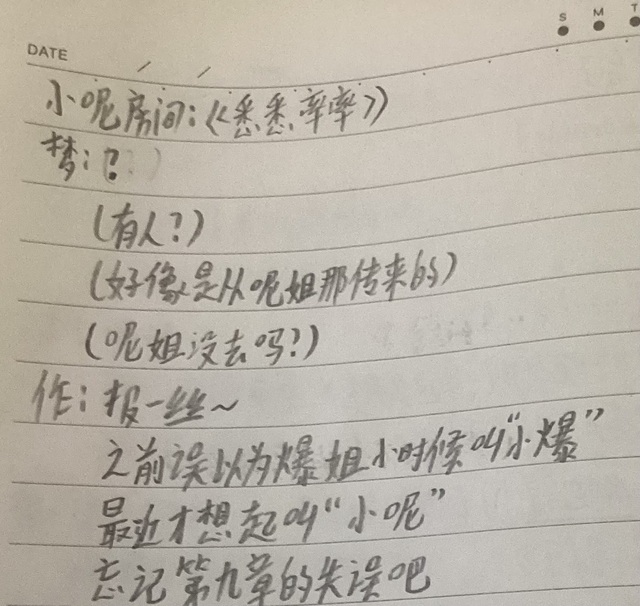 S M T
DATE
小呢房间:《悉悉率率》
梦:?
(有人?)
(好像是从呢姐那传来的)
(呢姐没去吗?)
作:报一丝~
之前误以为爆姐小时候叫“小爆”
最近才想起叫“小呢”
忘记第九章的失误吧